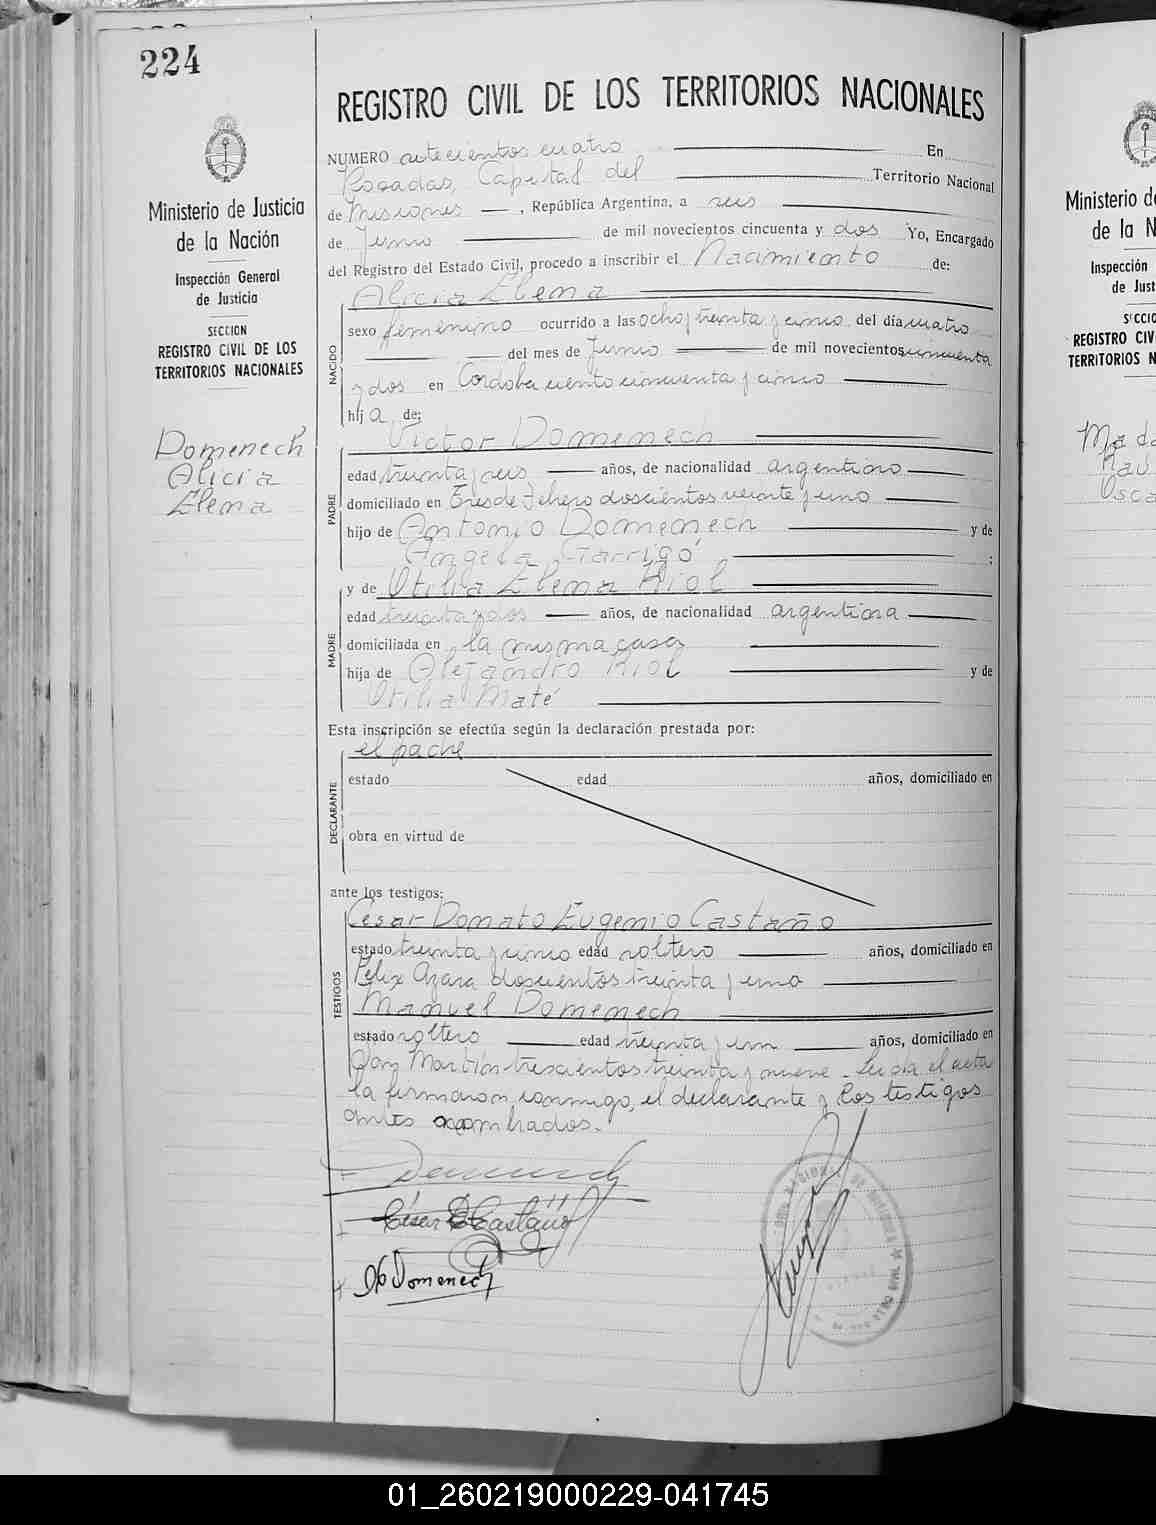 224
REGISTRO CIVIL DE LOS TERRITORIOS NACIONALES
Ministerio de Justicia
de la Nación
Inspección General
de Justicia
SECCION
REGISTRO CIVIL DE LOS
TERRITORIOS NACIONALES
Domenech
Alicia
Elena
NUMERO setecientos cuatro En
Posadas, Capital del Territorio Nacional
de Misiones, República Argentina, a seis
de Junio de mil novecientos cincuenta y dos Yo, Encargado
del Registro del Estado Civil, procedo a inscribir el Nacimiento de:
Alicia Elena
NACIDO
sexo femenino ocurrido a las ocho y treinta y cinco del día cuatro
del mes de Junio de mil novecientos cincuenta
y dos en Cordoba ciento cincuenta y cinco
hij a de:
Victor Domenech
PADRE
edad treinta y seis años, de nacionalidad argentino
domiciliado en Tres de Febrero doscientos veinte y uno
hijo de Antonio Domenech y de
Angela Garrigó ;
y de Otilia Elena Riol
MADRE
edad treinta y dos años, de nacionalidad argentina
domiciliada en la misma casa
hija de Alejandro Riol y de
Otilia Maté
Esta inscripción se efectúa según la declaración prestada por:
el padre
DECLARANTE
estado edad años, domiciliado en
obra en virtud de
ante los testigos:
Cesar Donato Eugenio Castaño
TESTIGOS
estado treinta y cinco edad soltero años, domiciliado en
Felix Azara doscientos treinta y uno
Manuel Domenech
estado soltero edad treinta y un años, domiciliado en
San Martín trescientos treinta y nueve. Leida el acta
la firmaron conmigo, el declarante y los testigos
antes nombrados.
Domenech
César D Castaño
Domenech
Ministerio de
de la N
Inspección
de Just
SECCIO
REGISTRO CIV
TERRITORIOS N
01_260219000229-041745